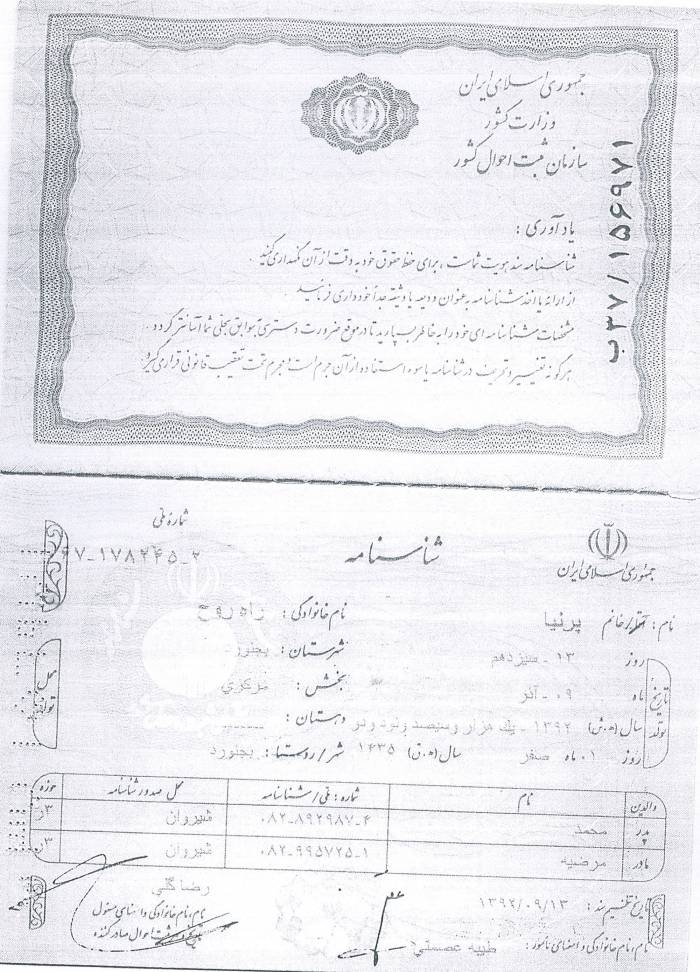 جمهوری اسلامی ایران
وزارت کشور
سازمان ثبت احوال کشور
ب۳۷/۱۵۶۹۷۱
یادآوری :
شناسنامه سند هویت شماست ، برای حفظ حقوق خود به دقت از آن نگهداری کنید .
از ارائه یا اخذ شناسنامه به عنوان ودیعه یا وثیقه جداً خودداری فرمائید .
مشخصات شناسنامه ای خود را به خاطر بسپارید تا در موقع ضرورت دسترسی به سوابق سجلی شما آسانتر گردد .
هرگونه تغییر و تحریف در شناسنامه یا سوء استفاده از آن جرم است و مجرم تحت تعقیب قانونی قرار می گیرد .
شماره ملی
۷-۱۷۸۲۴۵-۲
شناسنامه
جمهوری اسلامی ایران
نام : آقا/خانم پرنیا نام خانوادگی : راه روح
تاریخ تولد
روز ۱۳ - سیزدهم شهرستان : بجنورد
ماه ۰۹ - آذر بخش : مرکزی
سال (ه.ش) ۱۳۹۲ - یك هزار و سیصد و نود و دو دهستان : ------
روز ۰۱ ماه صفر سال (ه.ق) ۱۴۳۵ شهر/روستا : بجنورد
محل تولد
والدین نام شماره : ملی/شناسنامه محل صدور شناسنامه حوزه
پدر محمد ۰۸۲-۸۹۲۹۸۷-۴ شیروان ۳ر
مادر مرضیه ۰۸۲-۹۹۵۷۲۵-۱ شیروان ۳ر
تاریخ تنظیم سند : ۱۳۹۲/۰۹/۱۳
رضا گلی
نام، نام خانوادگی و امضای مسئول
نام، نام خانوادگی و امضای مأمور : طیبه عصمتی